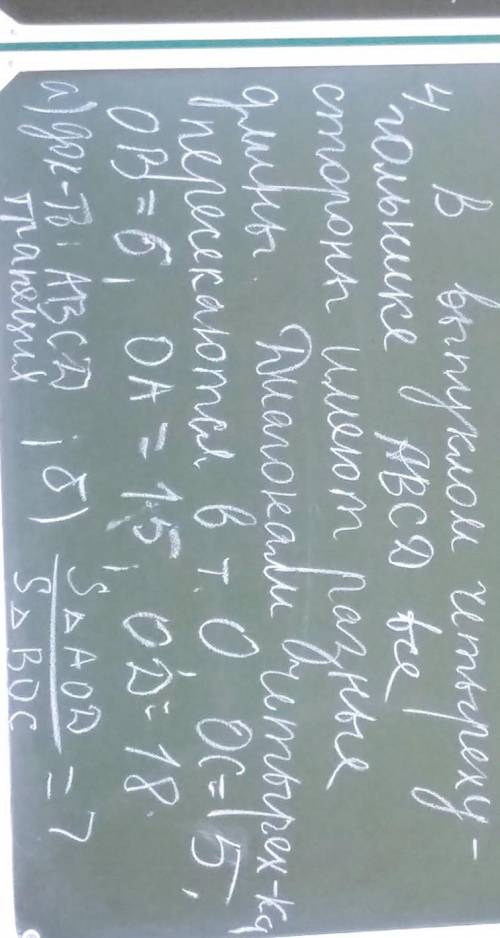 В выпуклом четыреху-
гольнике ABCD все
стороны имеют разные
длины. Диагонали четырех-ка
пересекаются в т. O OC=5,
OB=6, OA=15, OD=18.
а) док-ть: ABCD трапеция ; б) S△AOD / S△BOC = ?